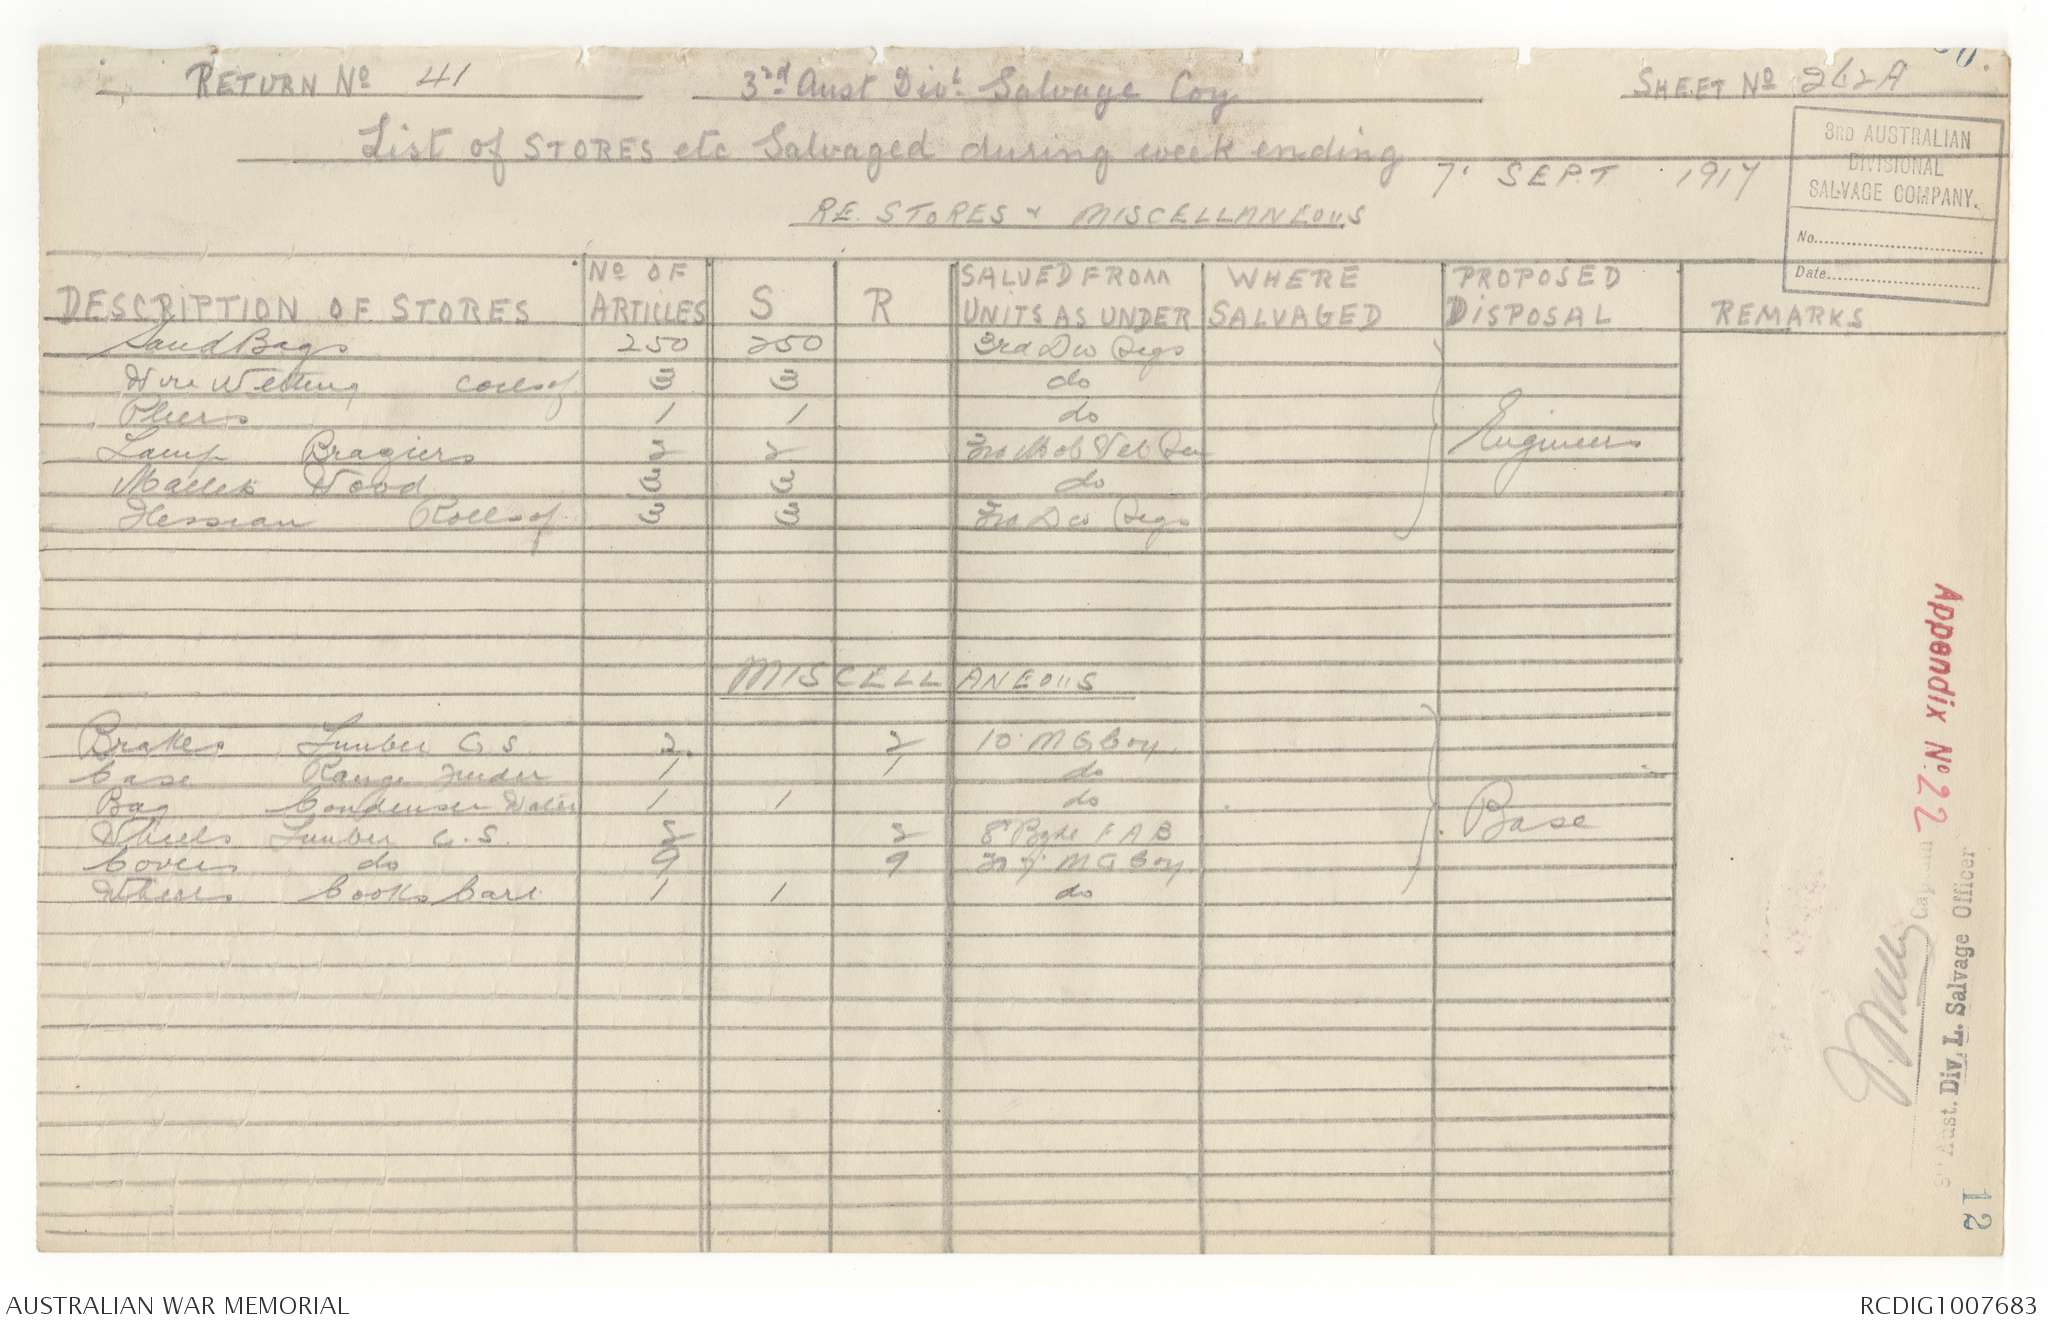 RETURN No 41 3rd Aust Divl Salvage Coy SHEET No 262A
List of STORES etc Salvaged during week ending 7. SEPT 1917
R.E. STORES & MISCELLANEOUS
3RD AUSTRALIAN
DIVISIONAL
SALVAGE COMPANY.
No.
Date
DESCRIPTION OF STORES No OF ARTICLES S R SALVED FROM UNITS AS UNDER WHERE SALVAGED PROPOSED DISPOSAL REMARKS
Sand Bags 250 250 3rd Div
Wire Netting Coils of 3 3 do
Pliers 1 1 do
Lamp Braziers 2 2 3rd Mob Vet Sec
Mallets Wood 3 3 do
Hessian Rolls of 3 3 3rd Div
Engineers
MISCELLANEOUS
Brakes Limber G.S. 2. 2 10 M G Coy.
Case Range Finder 1 1 do
Bag Condenser Water 1 1 do
Wheels Limber G.S. 2 2 8 Bgde F A B
Covers do 9 9 M G Coy
Wheels Cooks Cart 1 1 do
Base
Appendix No. 22
Captain
3rd Aust. Div. L. Salvage Officer
12
AUSTRALIAN WAR MEMORIAL RCDIG1007683